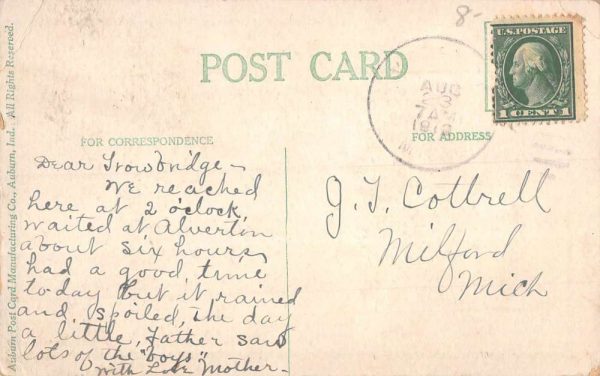 8-
U.S. POSTAGE
1 CENT 1
POST CARD
AUG
23
7 AM
M
FOR CORRESPONDENCE
FOR ADDRESS
Auburn Post Card Manufacturing Co., Auburn, Ind. All Rights Reserved.
Dear Trowbridge -
We reached
here at 2 o'clock,
waited at Alverton
about six hours
had a good time
today but it rained
and spoiled, the day
a little, Father saw
lots of the "boys"
With Love Mother -
J. T. Cottrell
Milford
Mich